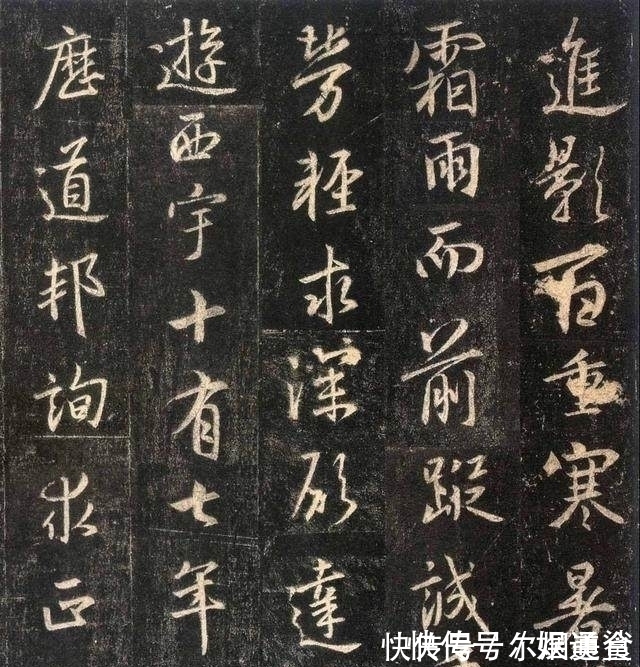 進影百重寒暑
霜雨而前蹤誠
勞輕求深願達
遊西宇十有七年
歷道邦詢求正